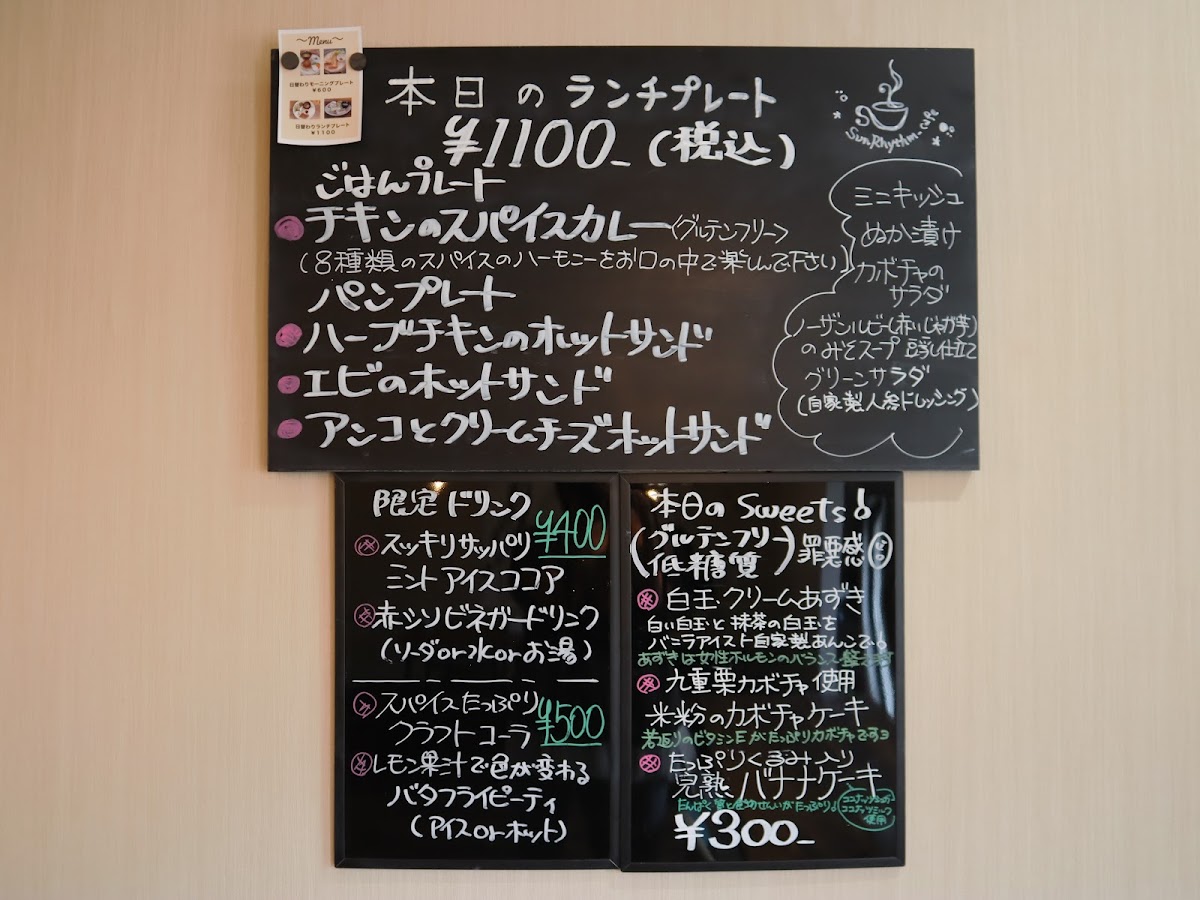 〜Menu〜
日替わりモーニングプレート
¥600
日替わりランチプレート
¥1100
本日のランチプレート
¥1100-(税込)
SunRhythm-cafe
ごはんプレート
チキンのスパイスカレー〈グルテンフリー〉
(8種類のスパイスのハーモニーをお口の中で楽しんで下さい)
パンプレート
ハーブチキンのホットサンド
エビのホットサンド
アンコとクリームチーズホットサンド
ミニキッシュ
ぬか漬け
カボチャの
サラダ
ノーザンルビー(赤いじゃが芋)
のみそスープ 豆乳仕立て
グリーンサラダ
(自家製人参ドレッシング)
限定ドリンク
¥400
スッキリサッパリ
ミントアイスココア
赤シソビネガードリンク
(ソーダor水orお湯)
スパイスたっぷり
¥500
クラフトコーラ
レモン果汁で色が変わる
バタフライピーティ
(アイスorホット)
本日のSweets!
(グルテンフリー
低糖質)
罪悪感ゼロ
白玉クリームあずき
白い白玉と抹茶の白玉を
バニラアイスト自家製あんこで!
あずきは女性ホルモンのバランス
九重栗カボチャ使用
米粉のカボチャケーキ
若返りのビタミンEがたっぷりカボチャです
たっぷりくるみ入り
完熟バナナケーキ
たんぱく質と食物せんいがたっぷり!
ココナッツシュガー
ココナッツミルク
使用
¥300-